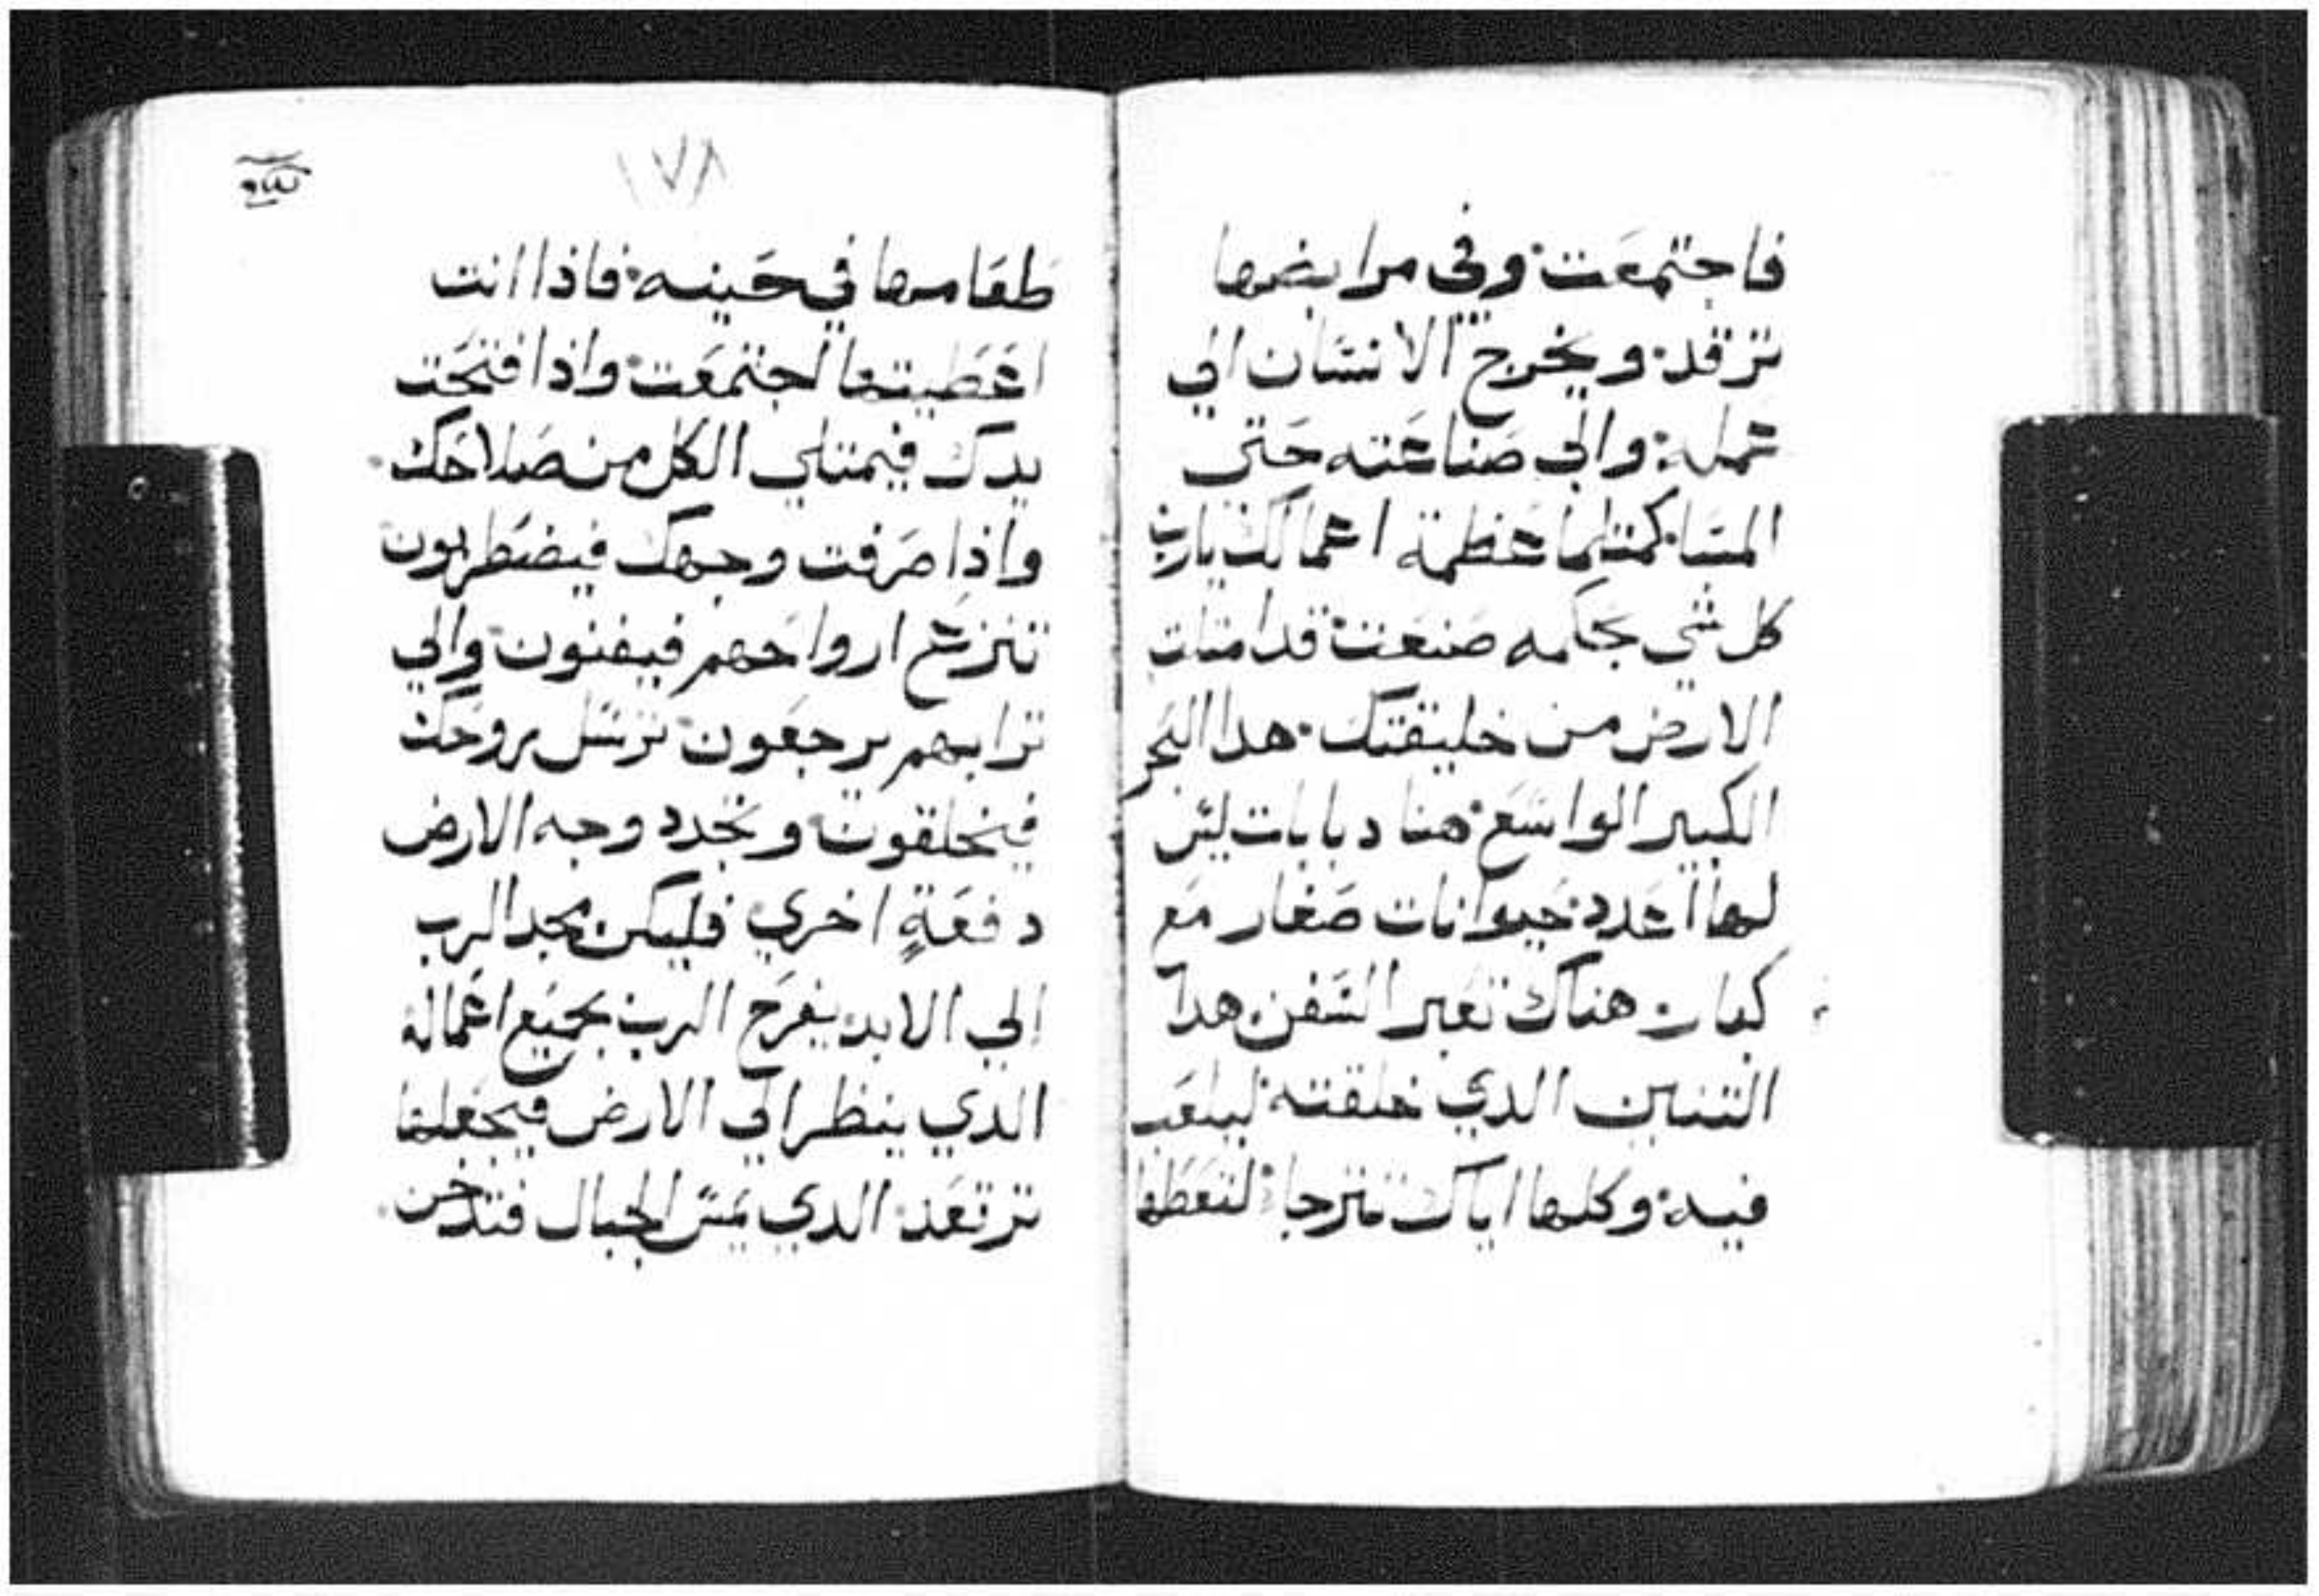 فاجتمعت وفي مرابضها
ترقد ويخرج الانسان الي
عمله والي صناعته حتي
المسا كمثل ما عظمة اعمالك يارب
كل شي بحكمه صنعت قد امتلت
الارض من خليقتك هدا البحر
الكبير الواسع هنا دبابات ليس
لها اعدد حيوانات صغار مع
كبار هناك تعبر السفن هدا
التنين الدي خلقته ليلعب
فيه وكلها اياك تترجا لتعطها
١٧٨
طعامها في حينه فاذا انت
اعطيتها اجتمعت واذا فتحت
يدك فيمتلي الكل من صلاحك
واذا صرفت وجهك فيضطربون
تنزع ارواحهم فيفنون والي
ترابهم يرجعون ترسل روحك
فيخلقون وتجدد وجه الارض
دفعة اخري فليكن مجد الرب
الي الابد يفرح الرب بجميع اعماله
الدي ينظر الي الارض فيجعلها
ترتعد الدي يمس الجبال فتدخن